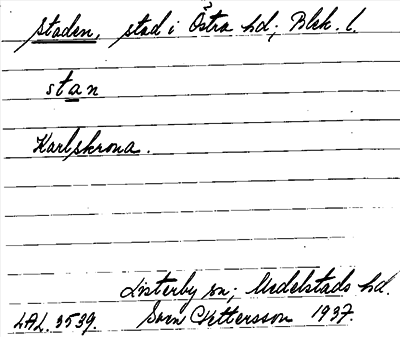 Staden, stad i Östra hd; Blek. l.
stan
Karlskrona.
Listerby sn; Medelstads hd.
LAL. 3539. Sven Pettersson 1937.